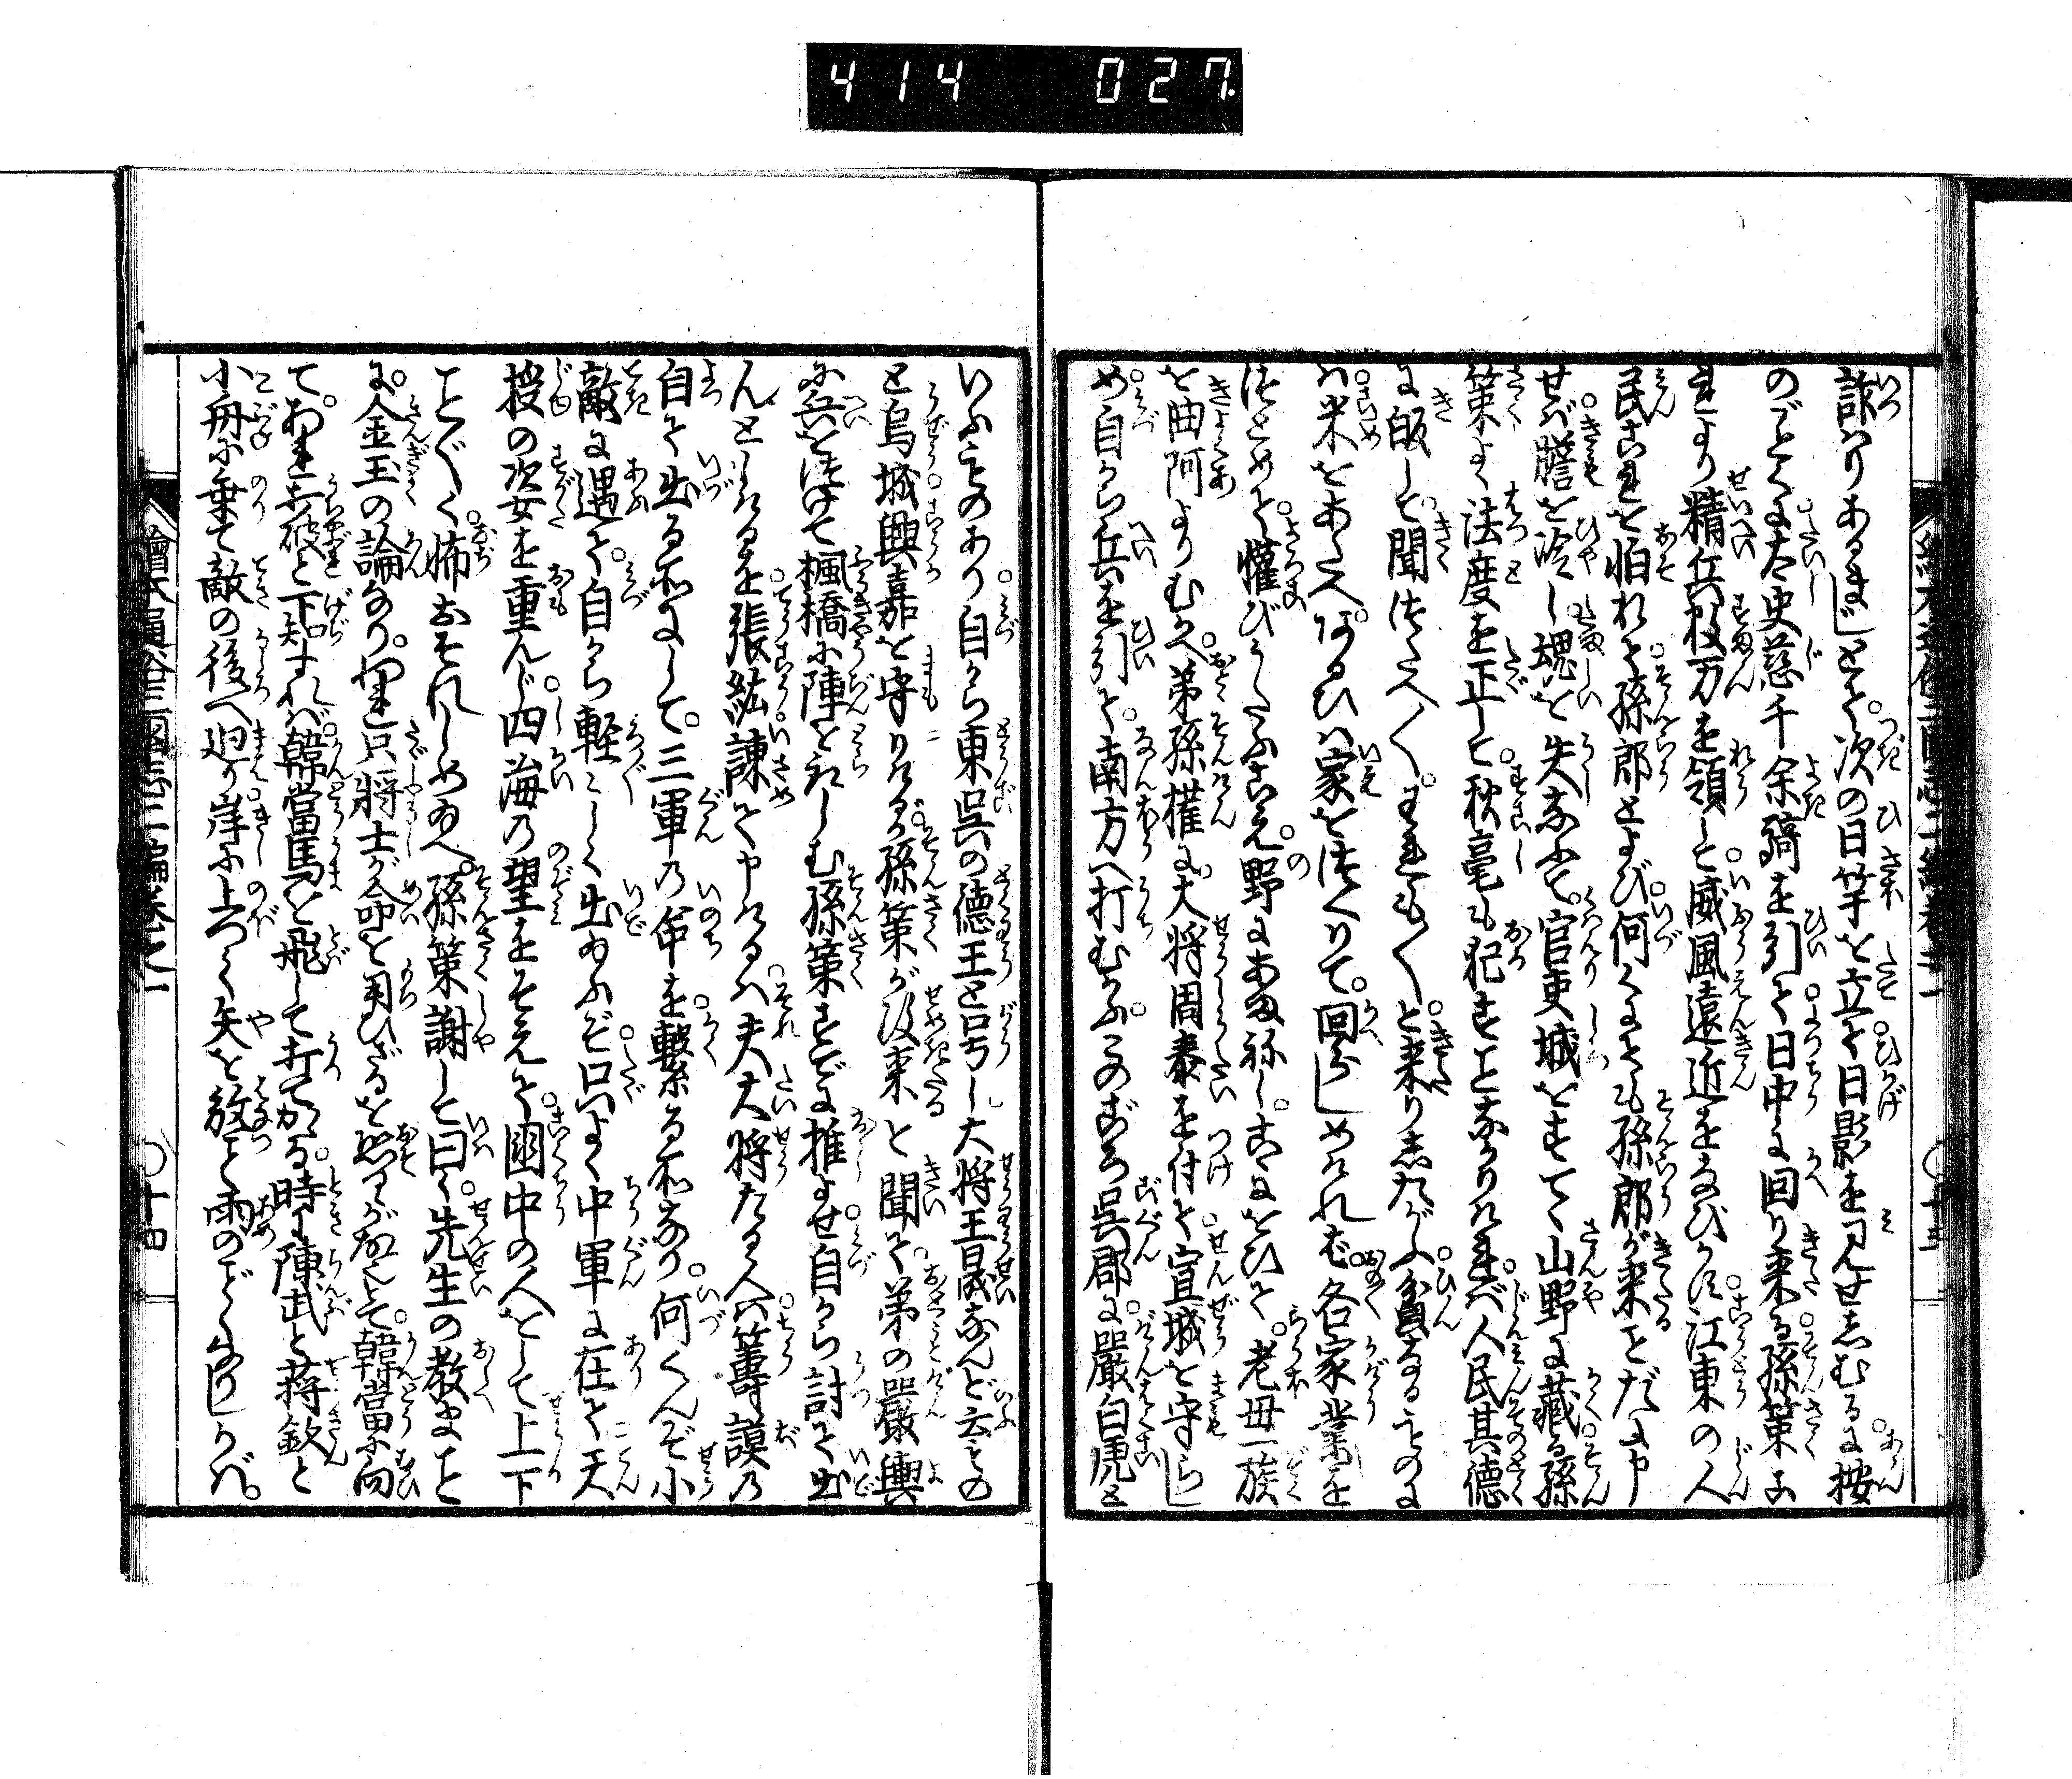 414 027.
詐りあるまじとて。次の日竿を立て日影を見せ志むるに。按
のごとくに太史慈千余騎を引て日中に回り来る。孫策是
より精兵数万を領して威風遠近をなびかす。江東の人
民これを怕れて孫郎とよび何くにても孫郎が来とだに申
せば膽を冷し魂を失なふて。官吏城をすてゝ山野に蔵る孫
策よく法度を正して。秋毫も犯すことなかりければ人民其徳
に皈して聞つたへ〳〵。われも〳〵と来り志たがふ貧なるものに
は米をあたへ。あるひは家をつくりて。回らしめければ。各家業を
つとめて。懽びうたふこゑ。野にあまねし。こゝにをひて。老母一族
を曲阿よりむかへ。弟孫権に。大将周泰を付て宣城を守らし
め自から兵を引て。南方へ打むかふ。そのころ呉郡に。嚴白虎と
いふものあり自から東呉の徳王と号し大将王晟なんど云もの
と烏城興嘉を守りけるが。孫策が攻来と聞て。弟の嚴輿
に兵をつけて楓橋に陣をとらしむ孫策すでに推よせ自から討て出
んとしけるを。張紘諌て申けるは。夫大将たる人は籌謨の
自て出る所にして。三軍の命を繋る所なり。何くんぞ小
敵に遇て。自から軽〻しく出玉ふぞ。只よく中軍に在て天
授の姿を重んじ。四海の望をそえて。國中の人をして上下
ことごとく。怖おそれしめ玉へ。孫策謝して曰く。先生の教まこと
に。金玉の論なり。われ只将士が命を用ひざるを恐るゝが故とて。韓當に向
て。おれ去破と下知すれば。韓當馬を飛して打てかゝる。時に陳武と蒋欽と
小舟に乗て敵の後へ廻り。岸に上つて矢を放て雨のごとくなりしかば。
繪本通俗三國志二編巻之一 〇十四